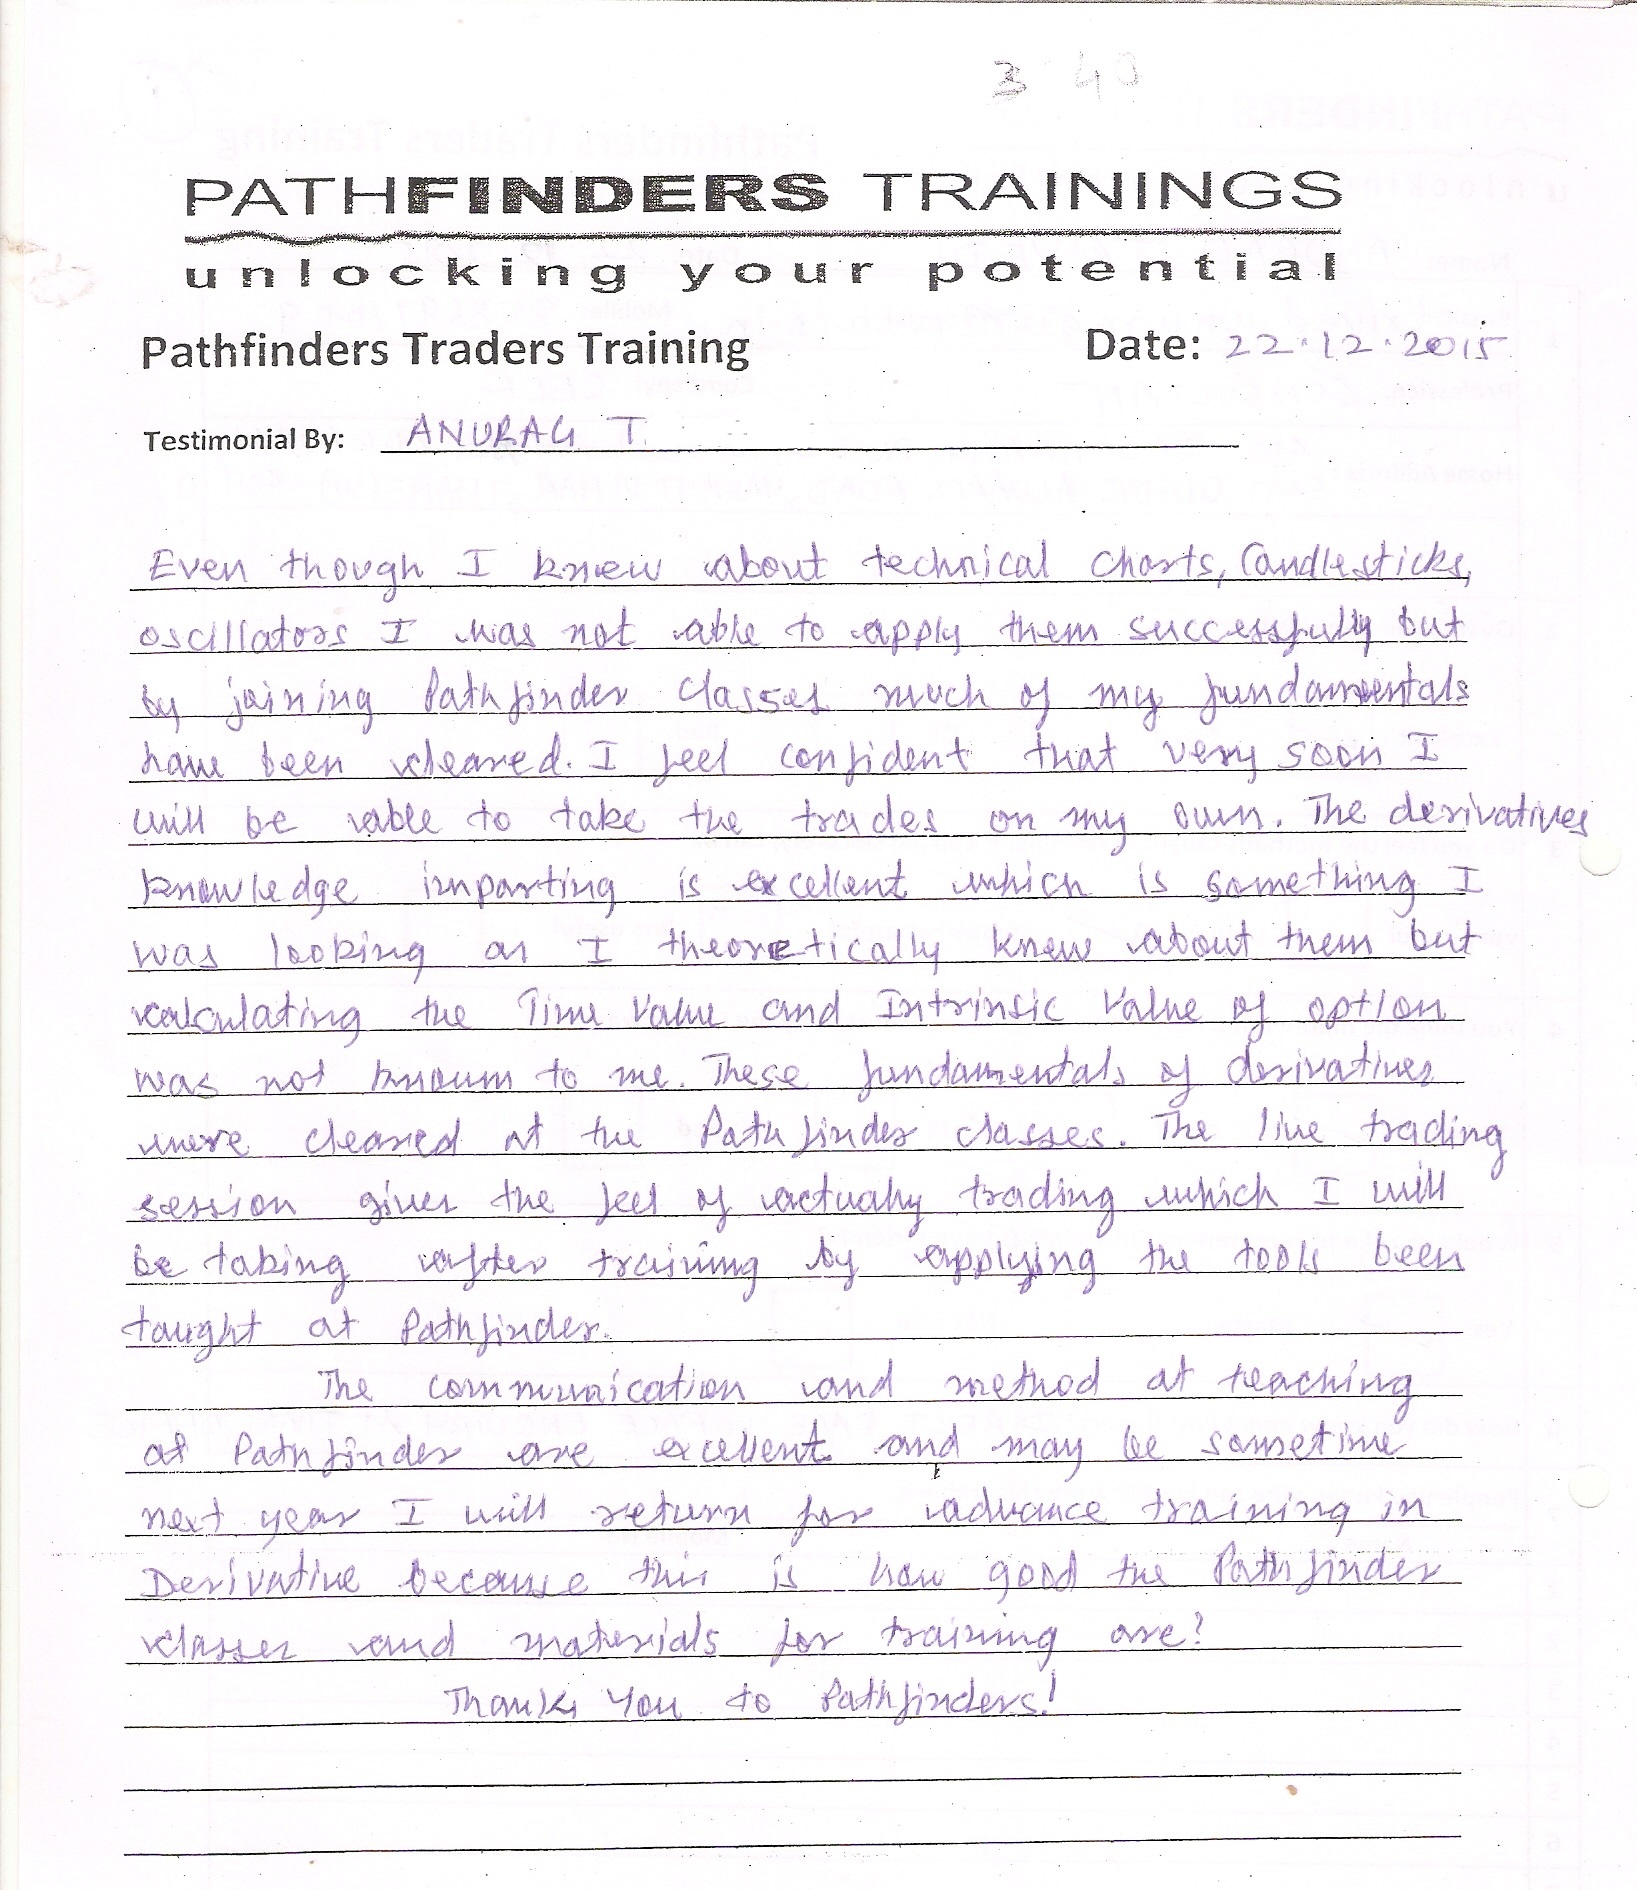 3 40
PATHFINDERS TRAININGS
unlocking your potential
Pathfinders Traders Training Date: 22.12.2015
Testimonial By: ANURAG T.
Even though I knew about technical charts, Candlesticks,
oscillators I was not able to apply them successfully but
by joining Pathfinder Classes much of my fundamentals
have been cleared. I feel confident that very soon I
will be able to take the trades on my own. The derivatives
knowledge imparting is excellent which is something I
was looking as I theoretically knew about them but
calculating the Time Value and Intrinsic Value of option
was not known to me. These fundamentals of derivatives
were cleared at the Pathfinder classes. The live trading
session gives the feel of actually trading which I will
be taking after training by applying the tools been
taught at Pathfinder.
The communication and method at teaching
at Pathfinder are excellent and may be sometime
next year I will return for advance training in
Derivative because this is how good the Pathfinder
classes and materials for training are?
Thanks You to Pathfinders!